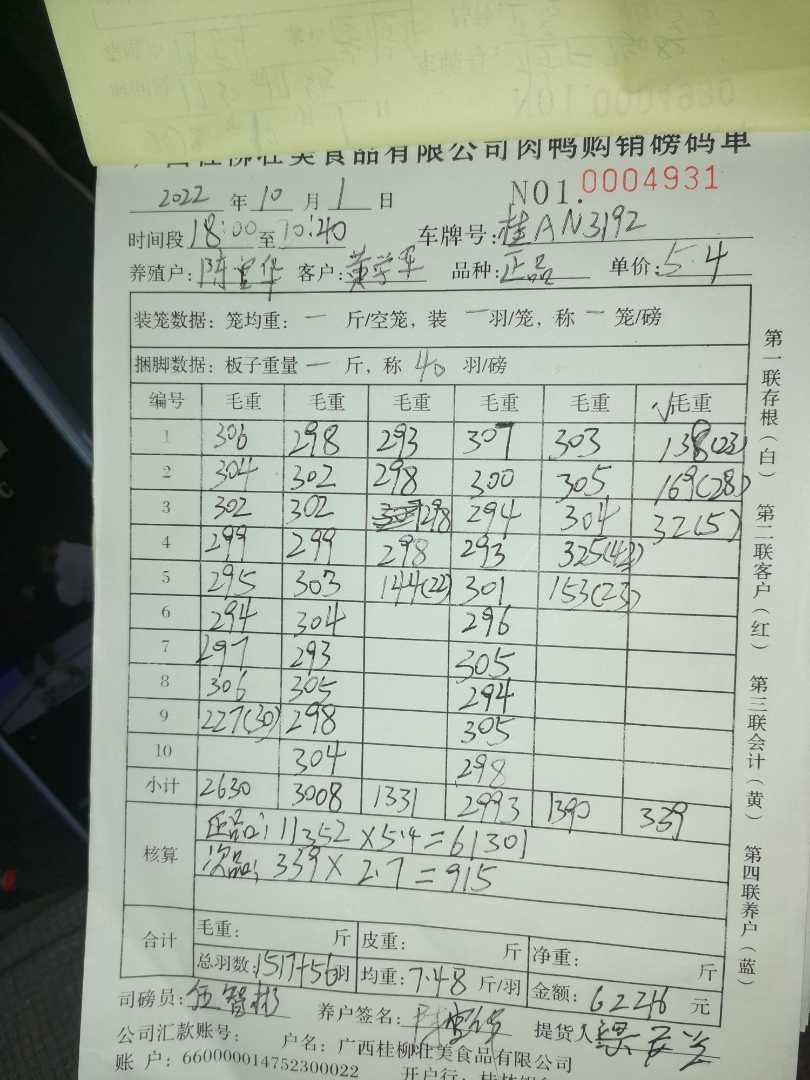 广西桂柳壮美食品有限公司肉鸭购销磅码单
2022 年 10 月 1 日 NO1. 0004931
时间段 18:00 至 20:40 车牌号: 桂AN3192
养殖户: 客户: 黄学军 品种: 正品 单价: 5.4
装笼数据: 笼均重: 一 斤/空笼, 装 一 羽/笼, 称 一 笼/磅
捆脚数据: 板子重量 一 斤, 称 40 羽/磅
编号 毛重 毛重 毛重 毛重 毛重 √毛重
1 306 298 293 307 303 138(23)
2 304 302 298 300 305 169(28)
3 302 302 298 294 304 32(5)
4 299 299 298 293 325(43)
5 295 303 144(22) 301 153(23)
6 294 304 296
7 297 293 305
8 306 305 294
9 227(30) 298 305
10 304 298
小计 2630 3008 1331 2993 1390 339
核算 正品: 11352×5.4=61301
次品: 339×2.7=915
合计 毛重: 斤 皮重: 斤 净重: 斤
总羽数: 1517+56羽 均重: 7.48 斤/羽 金额: 62216 元
司磅员: 伍智彬 养户签名: 提货人
公司汇款账号: 户名: 广西桂柳壮美食品有限公司
账 户: 660000014752300022 开户行:
第一联存根(白) 第二联客户(红) 第三联会计(黄) 第四联养户(蓝)